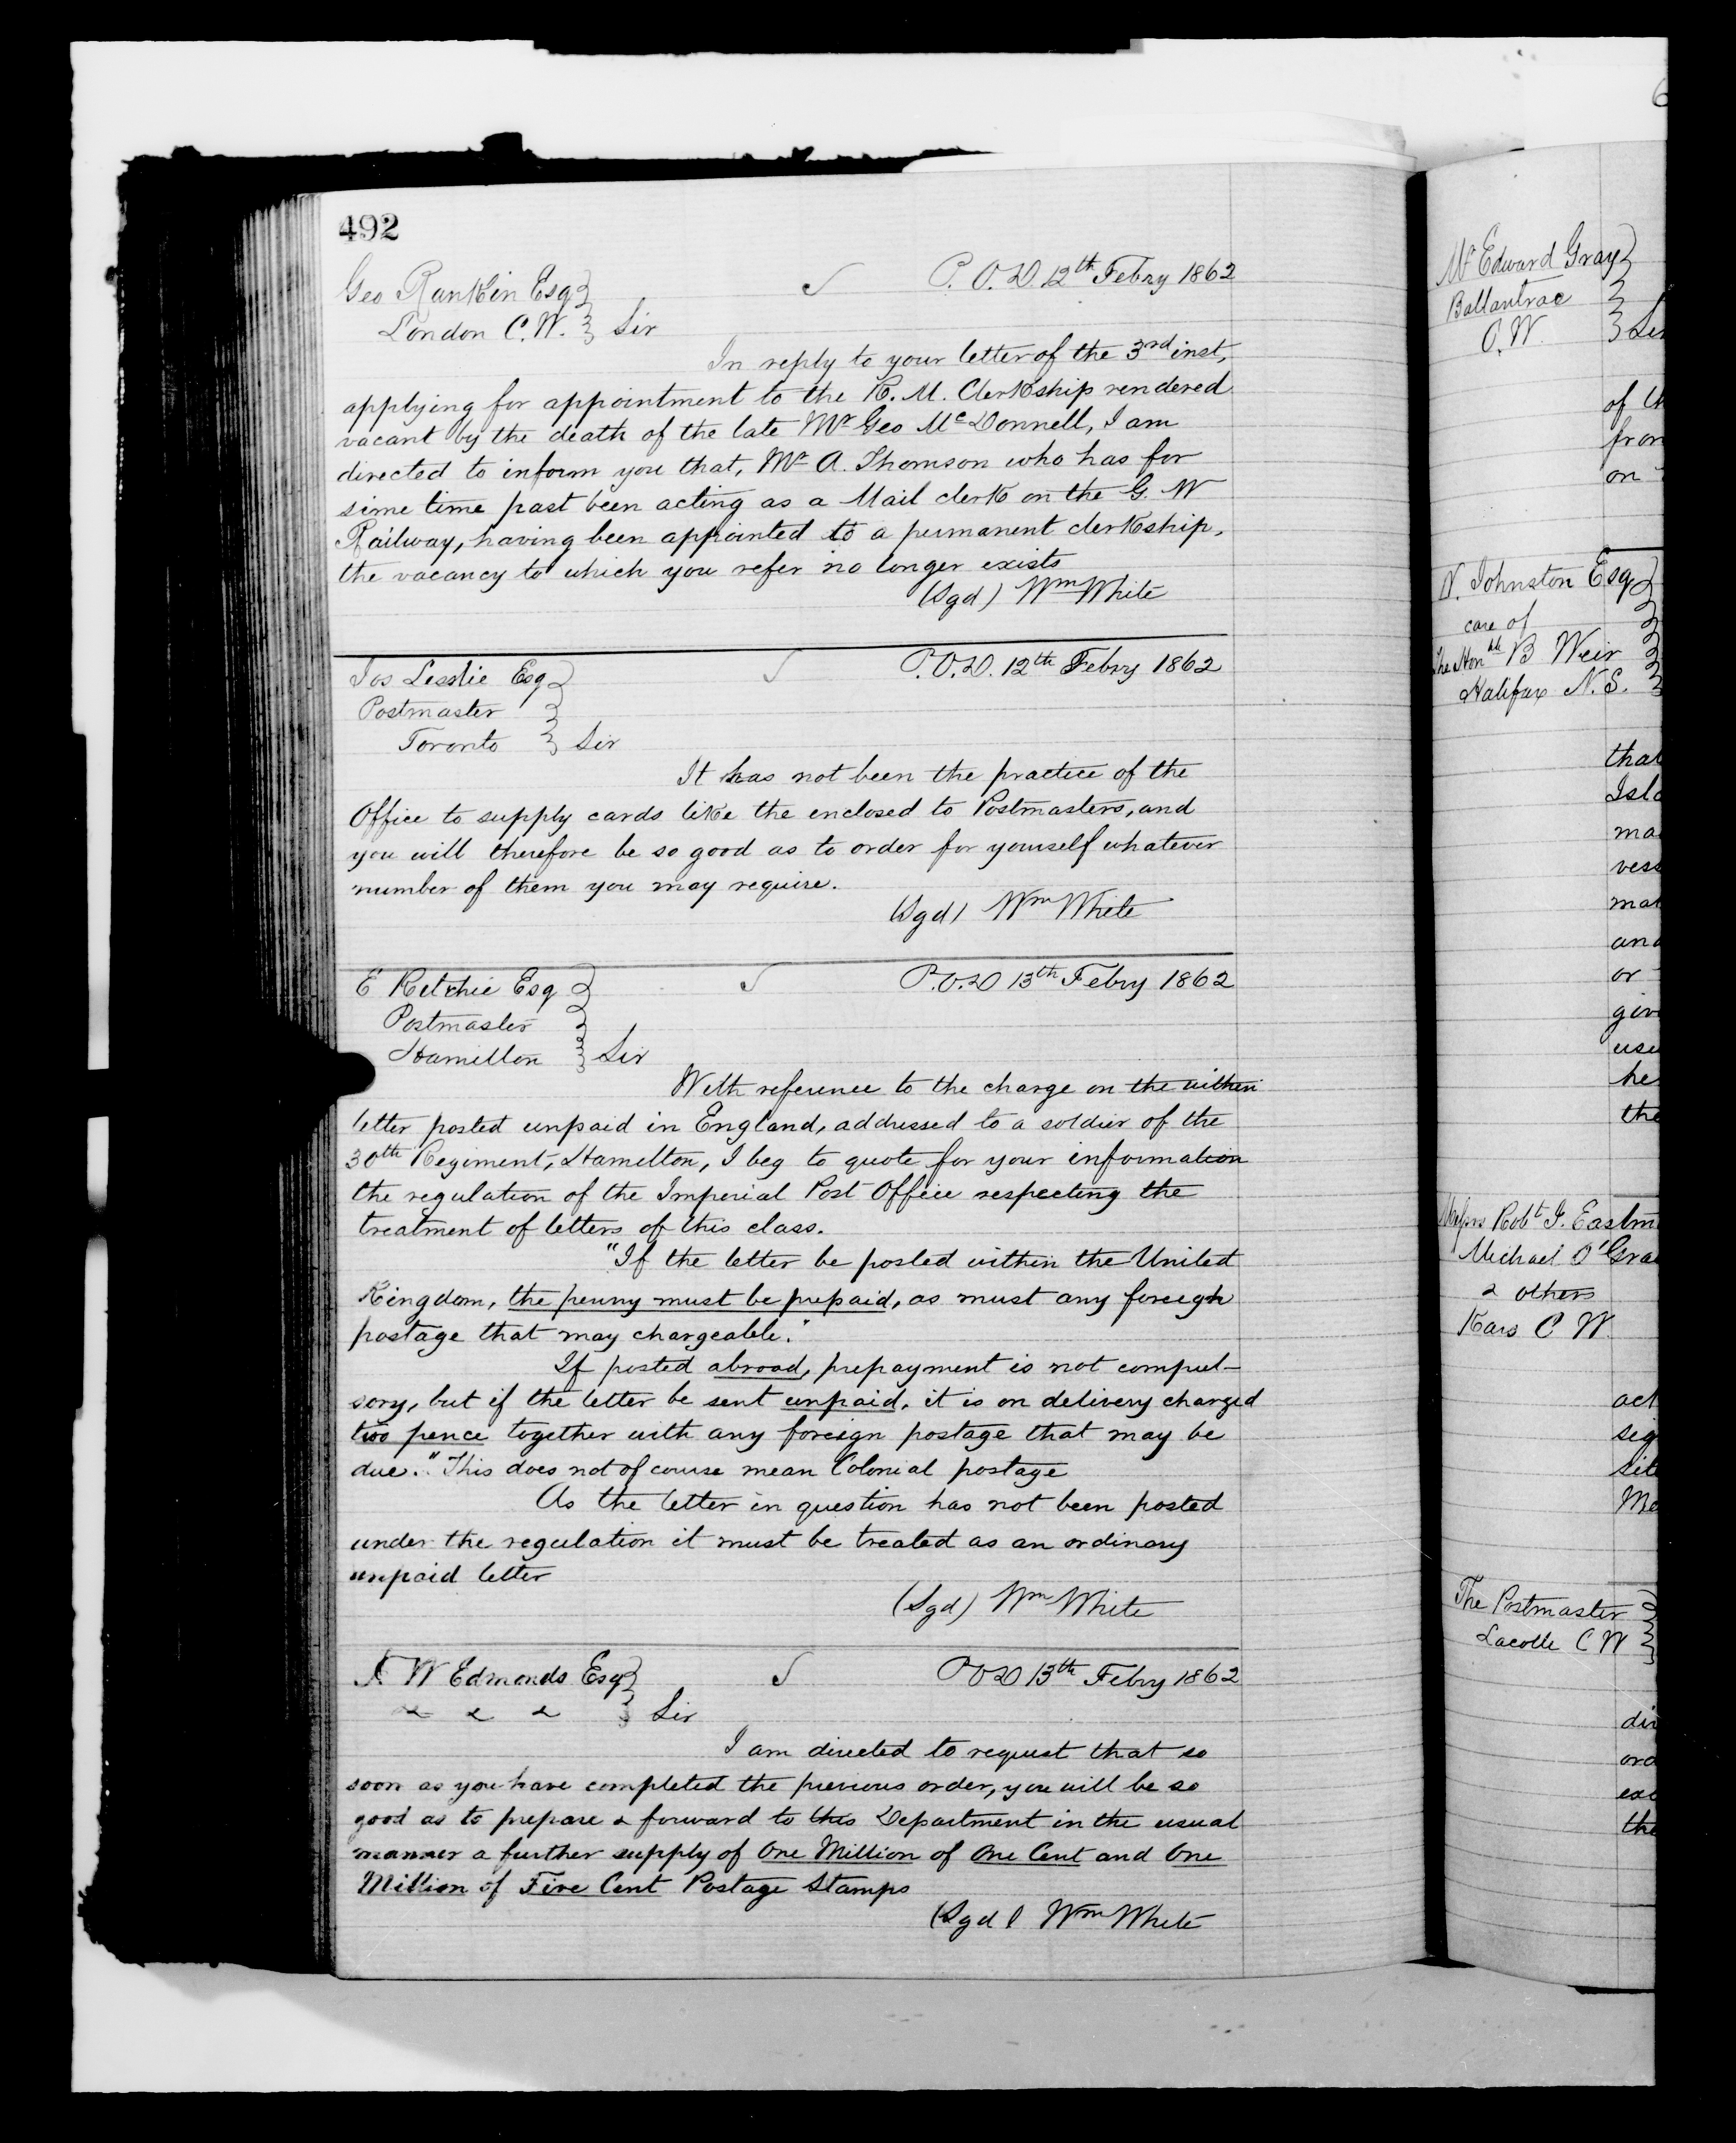 492
Geo Rankin Esq
P. O. D. 12th Febry 1862
London C. W. Sir
In reply to your letter of the 3rd inst,
applying for appointment to the R. M. Clerkship rendered
vacant by the death of the late Mr Geo McDonnell, I am
directed to inform you that, Mr A. Thomson who has for
sime time past been acting as a Mail clerk on the G. W
Railway, having been appointed to a permanent clerkship,
the vacancy to which you refer no longer exists
(Sgd) Wm White
Jos Lesslie Esq
P.O.D. 12th Febry 1862
Postmaster
Toronto Sir
It has not been the practice of the
Office to supply cards like the enclosed to Postmasters, and
you will therefore be so good as to order for yourself whatever
number of them you may require.
(Sgd) Wm White
E Ritchie Esq
P.O.D 13th Febry 1862
Postmaster
Hamilton Sir
With reference to the charge on the within
letter posted unpaid in England, addressed to a soldier of the
30th Regiment, Hamilton, I beg to quote for your information
the regulation of the Imperial Post Office respecting the
treatment of letters of this class.
"If the letter be posted within the United
Kingdom, the penny must be prepaid, as must any foreign
postage that may chargeable."
If posted abroad, prepayment is not compul-
sory, but if the letter be sent unpaid, it is on delivery charged
two pence together with any foreign postage that may be
due." This does not of course mean Colonial postage
As the letter in question has not been posted
under the regulation it must be treated as an ordinary
unpaid letter
(Sgd) Wm White
W Edmonds Esq
P O D 13th Febry 1862
Sir
I am directed to request that so
soon as you have completed the previous order, you will be so
good as to prepare & forward to this Department in the usual
manner a further supply of One Million of One Cent and One
Million of Five Cent Postage Stamps
(Sgd) Wm White
Mr Edward Gray
Ballantrae
C. W.
of th
from
on
N. Johnston Esq
care of
The Honble B Weir
Halifax N. S.
that
Isla
ma
vess
mat
and
or
giv
usu
he
the
Messrs Robt J. Eastm
Michael O'Gra
& others
Kars C W
act
sig
sit
Me
The Postmaster
Lacolle C W
dir
ord
exc
the